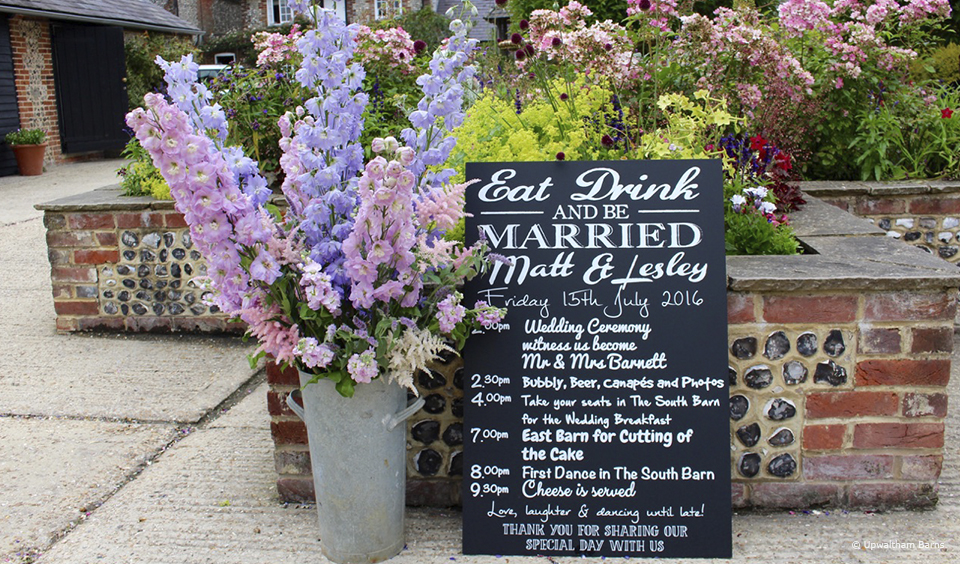 Eat Drink
AND BE
MARRIED
Matt & Lesley
Friday 15th July 2016
2.00pm Wedding Ceremony
witness us become
Mr & Mrs Barnett
2.30pm Bubbly, Beer, Canapés and Photos
4.00pm Take your seats in The South Barn
for the Wedding Breakfast
7.00pm East Barn for Cutting of
the Cake
8.00pm First Dance in The South Barn
9.30pm Cheese is served
Love, laughter & dancing until late!
THANK YOU FOR SHARING OUR
SPECIAL DAY WITH US
© Upwaltham Barns